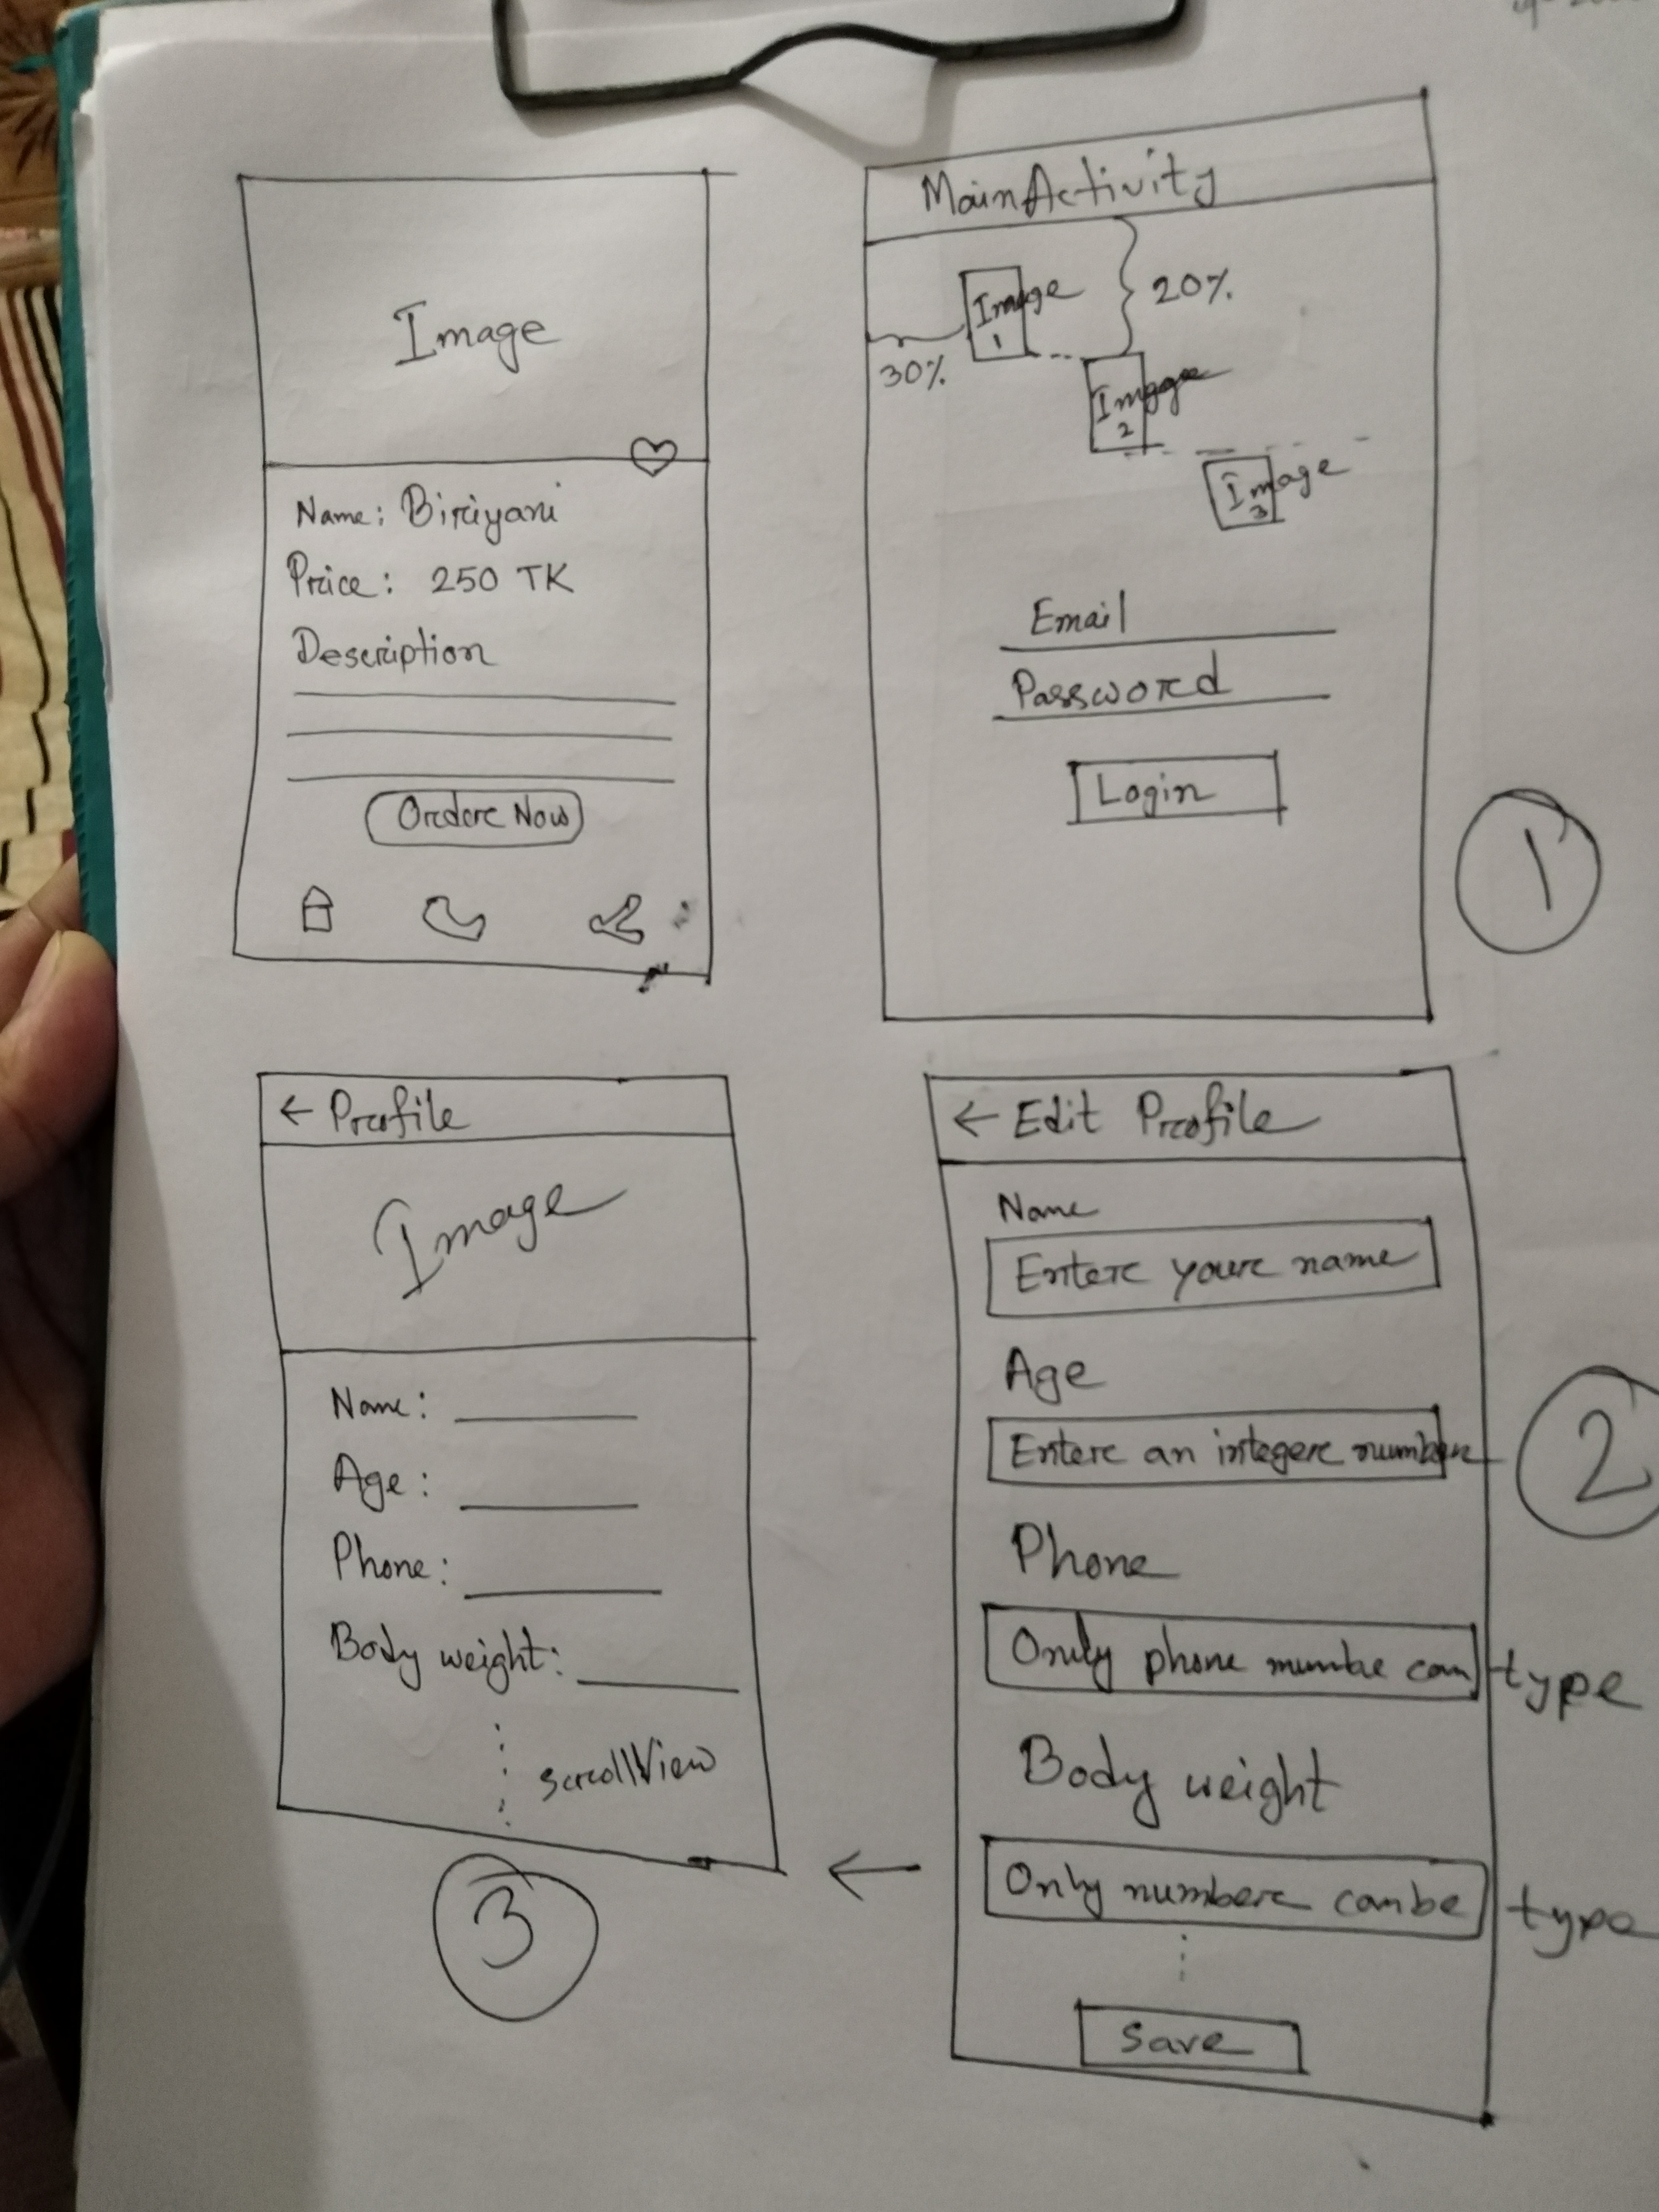 Image
Name: Biriyani
Price: 250 TK
Description
Order Now
MainActivity
Image
1
20%
30%
Image
2
Image
3
Email
Password
Login
1
← Profile
Image
Name:
Age:
Phone:
Body weight:
scrollView
3
← Edit Profile
Name
Enter your name
Age
Enter an integer number
Phone
Only phone numbe can type
Body weight
Only number can be type
Save
2